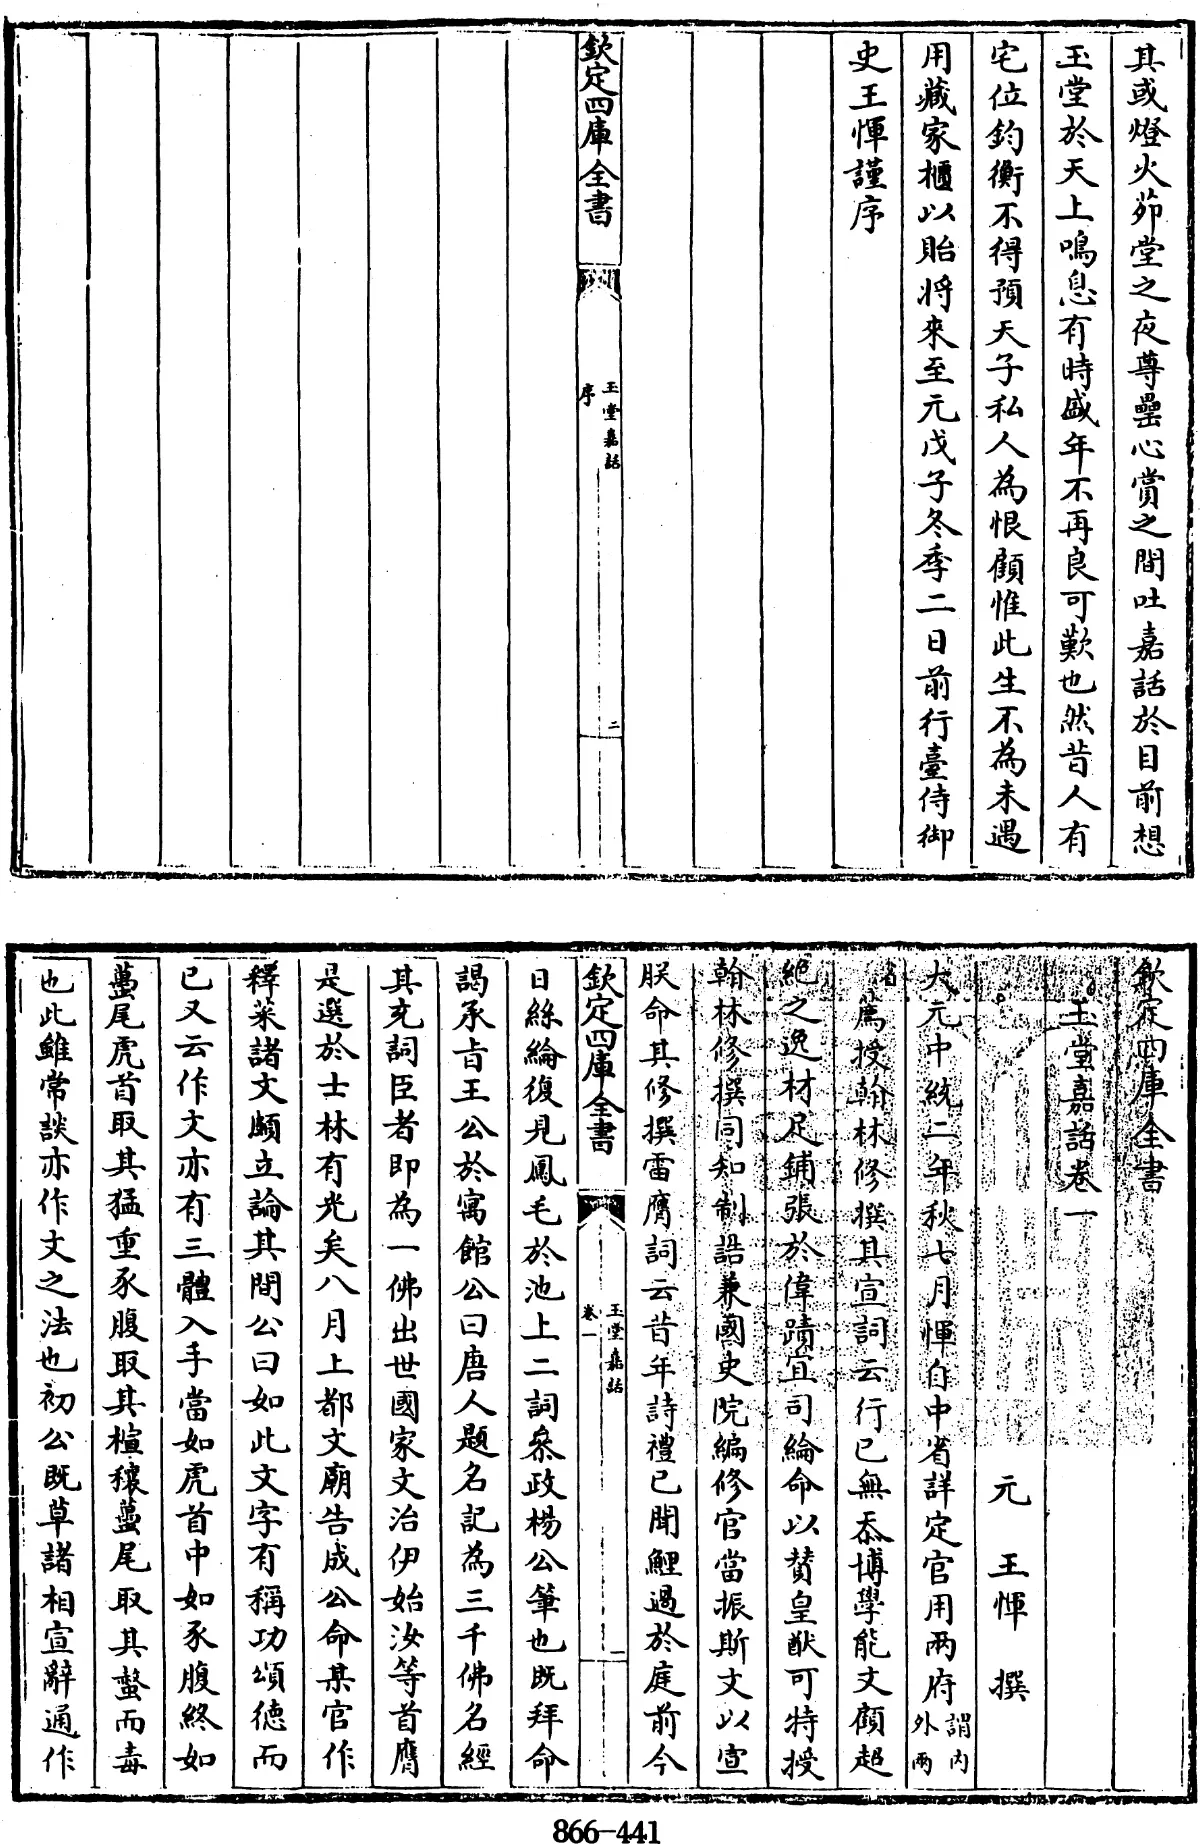 其或燈火茆堂之夜尊罍心賞之間吐嘉話於目前想
玉堂於天上鳴息有時盛年不再良可歎也然昔人有
宅位鈞衡不得預天子私人為恨顧惟此生不為未遇
用藏家櫃以貽將來至元戊子冬季二日前行臺侍御
史王惲謹序
欽定四庫全書
玉堂嘉話
序
二
欽定四庫全書
玉堂嘉話卷一
元 王惲 撰
大元中統二年秋七月惲自中省詳定官用兩府謂內外兩
省薦授翰林修撰其宣詞云行已無忝博學能文顧超
絶之逸材足鋪張於偉蹟宜司綸命以贊皇猷可特授
翰林修撰同知制誥兼國史院編修官當振斯文以宣
朕命其修撰雷膺詞云昔年詩禮已聞鯉過於庭前今
欽定四庫全書
玉堂嘉話
卷一
一
日絲綸復見鳳毛於池上二詞叅政楊公筆也既拜命
謁承旨王公於寓館公曰唐人題名記為三千佛名經
其充詞臣者即為一佛出世國家文治伊始汝等首膺
是選於士林有光矣八月上都文廟告成公命某官作
釋菜諸文頗立論其間公曰如此文字有稱功頌德而
已又云作文亦有三體入手當如虎首中如豕腹終如
蠆尾虎首取其猛重豕腹取其楦穰蠆尾取其螫而毒
也此雖常談亦作文之法也初公既草諸相宣辭通作
866-441